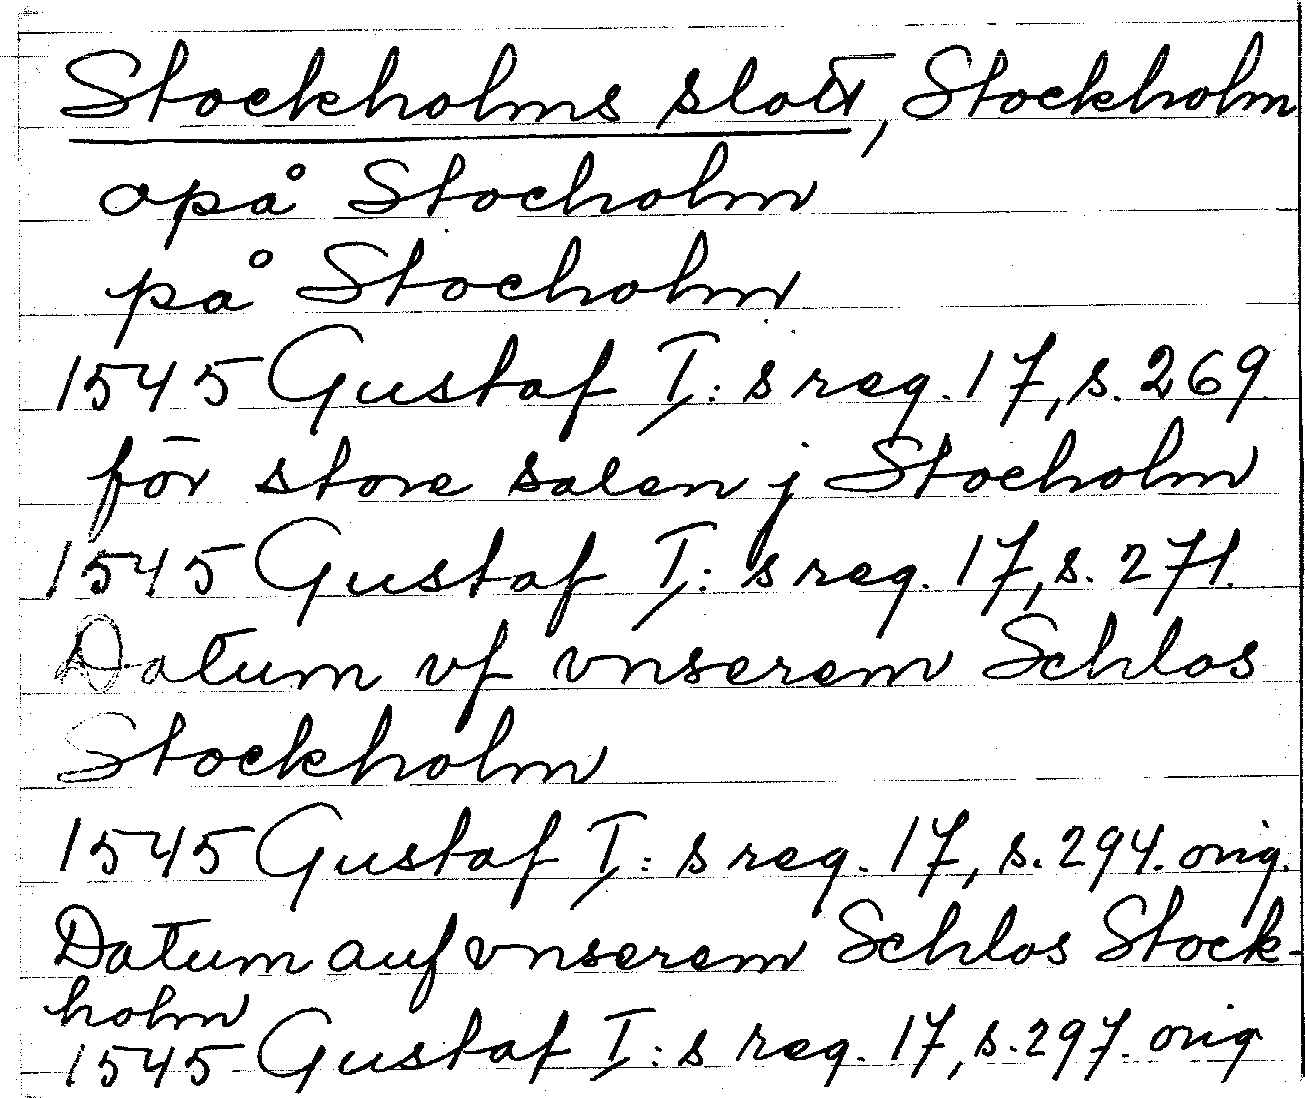 Stockholms slott, Stockholm
opå Stocholm
på Stocholm
1545 Gustaf I:s reg. 17, s. 269
för store salen j Stocholm
1545 Gustaf I:s reg. 17, s. 271.
Datum vf vnserem Schlos
Stockholm
1545 Gustaf I:s reg. 17, s. 294. orig.
Datum auf vnserem Schlos Stock-
holm
1545 Gustaf I:s reg. 17, s. 297. orig